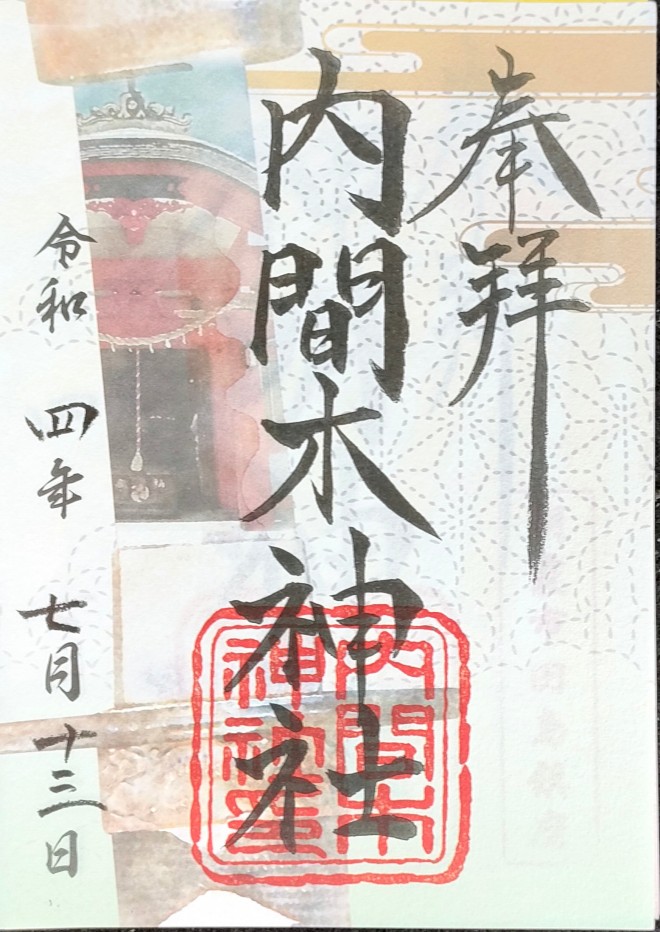 奉拝
内間木神社
令和四年七月十三日
内間木
神社